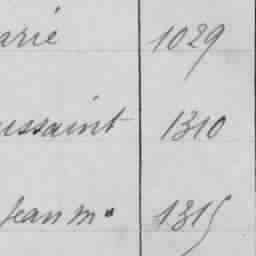 arié 1029
ussaint 1310
Jean Mie 1315